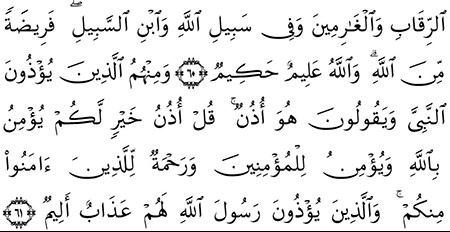 ٱلرِّقَابِ وَٱلْغَٰرِمِينَ وَفِى سَبِيلِ ٱللَّهِ وَٱبْنِ ٱلسَّبِيلِ ۖ فَرِيضَةً
مِّنَ ٱللَّهِ ۗ وَٱللَّهُ عَلِيمٌ حَكِيمٌ ٦٠ وَمِنْهُمُ ٱلَّذِينَ يُؤْذُونَ
ٱلنَّبِىَّ وَيَقُولُونَ هُوَ أُذُنٌ ۚ قُلْ أُذُنُ خَيْرٍ لَّكُمْ يُؤْمِنُ
بِٱللَّهِ وَيُؤْمِنُ لِلْمُؤْمِنِينَ وَرَحْمَةٌ لِّلَّذِينَ ءَامَنُوا۟
مِنكُمْ ۚ وَٱلَّذِينَ يُؤْذُونَ رَسُولَ ٱللَّهِ لَهُمْ عَذَابٌ أَلِيمٌ ٦١